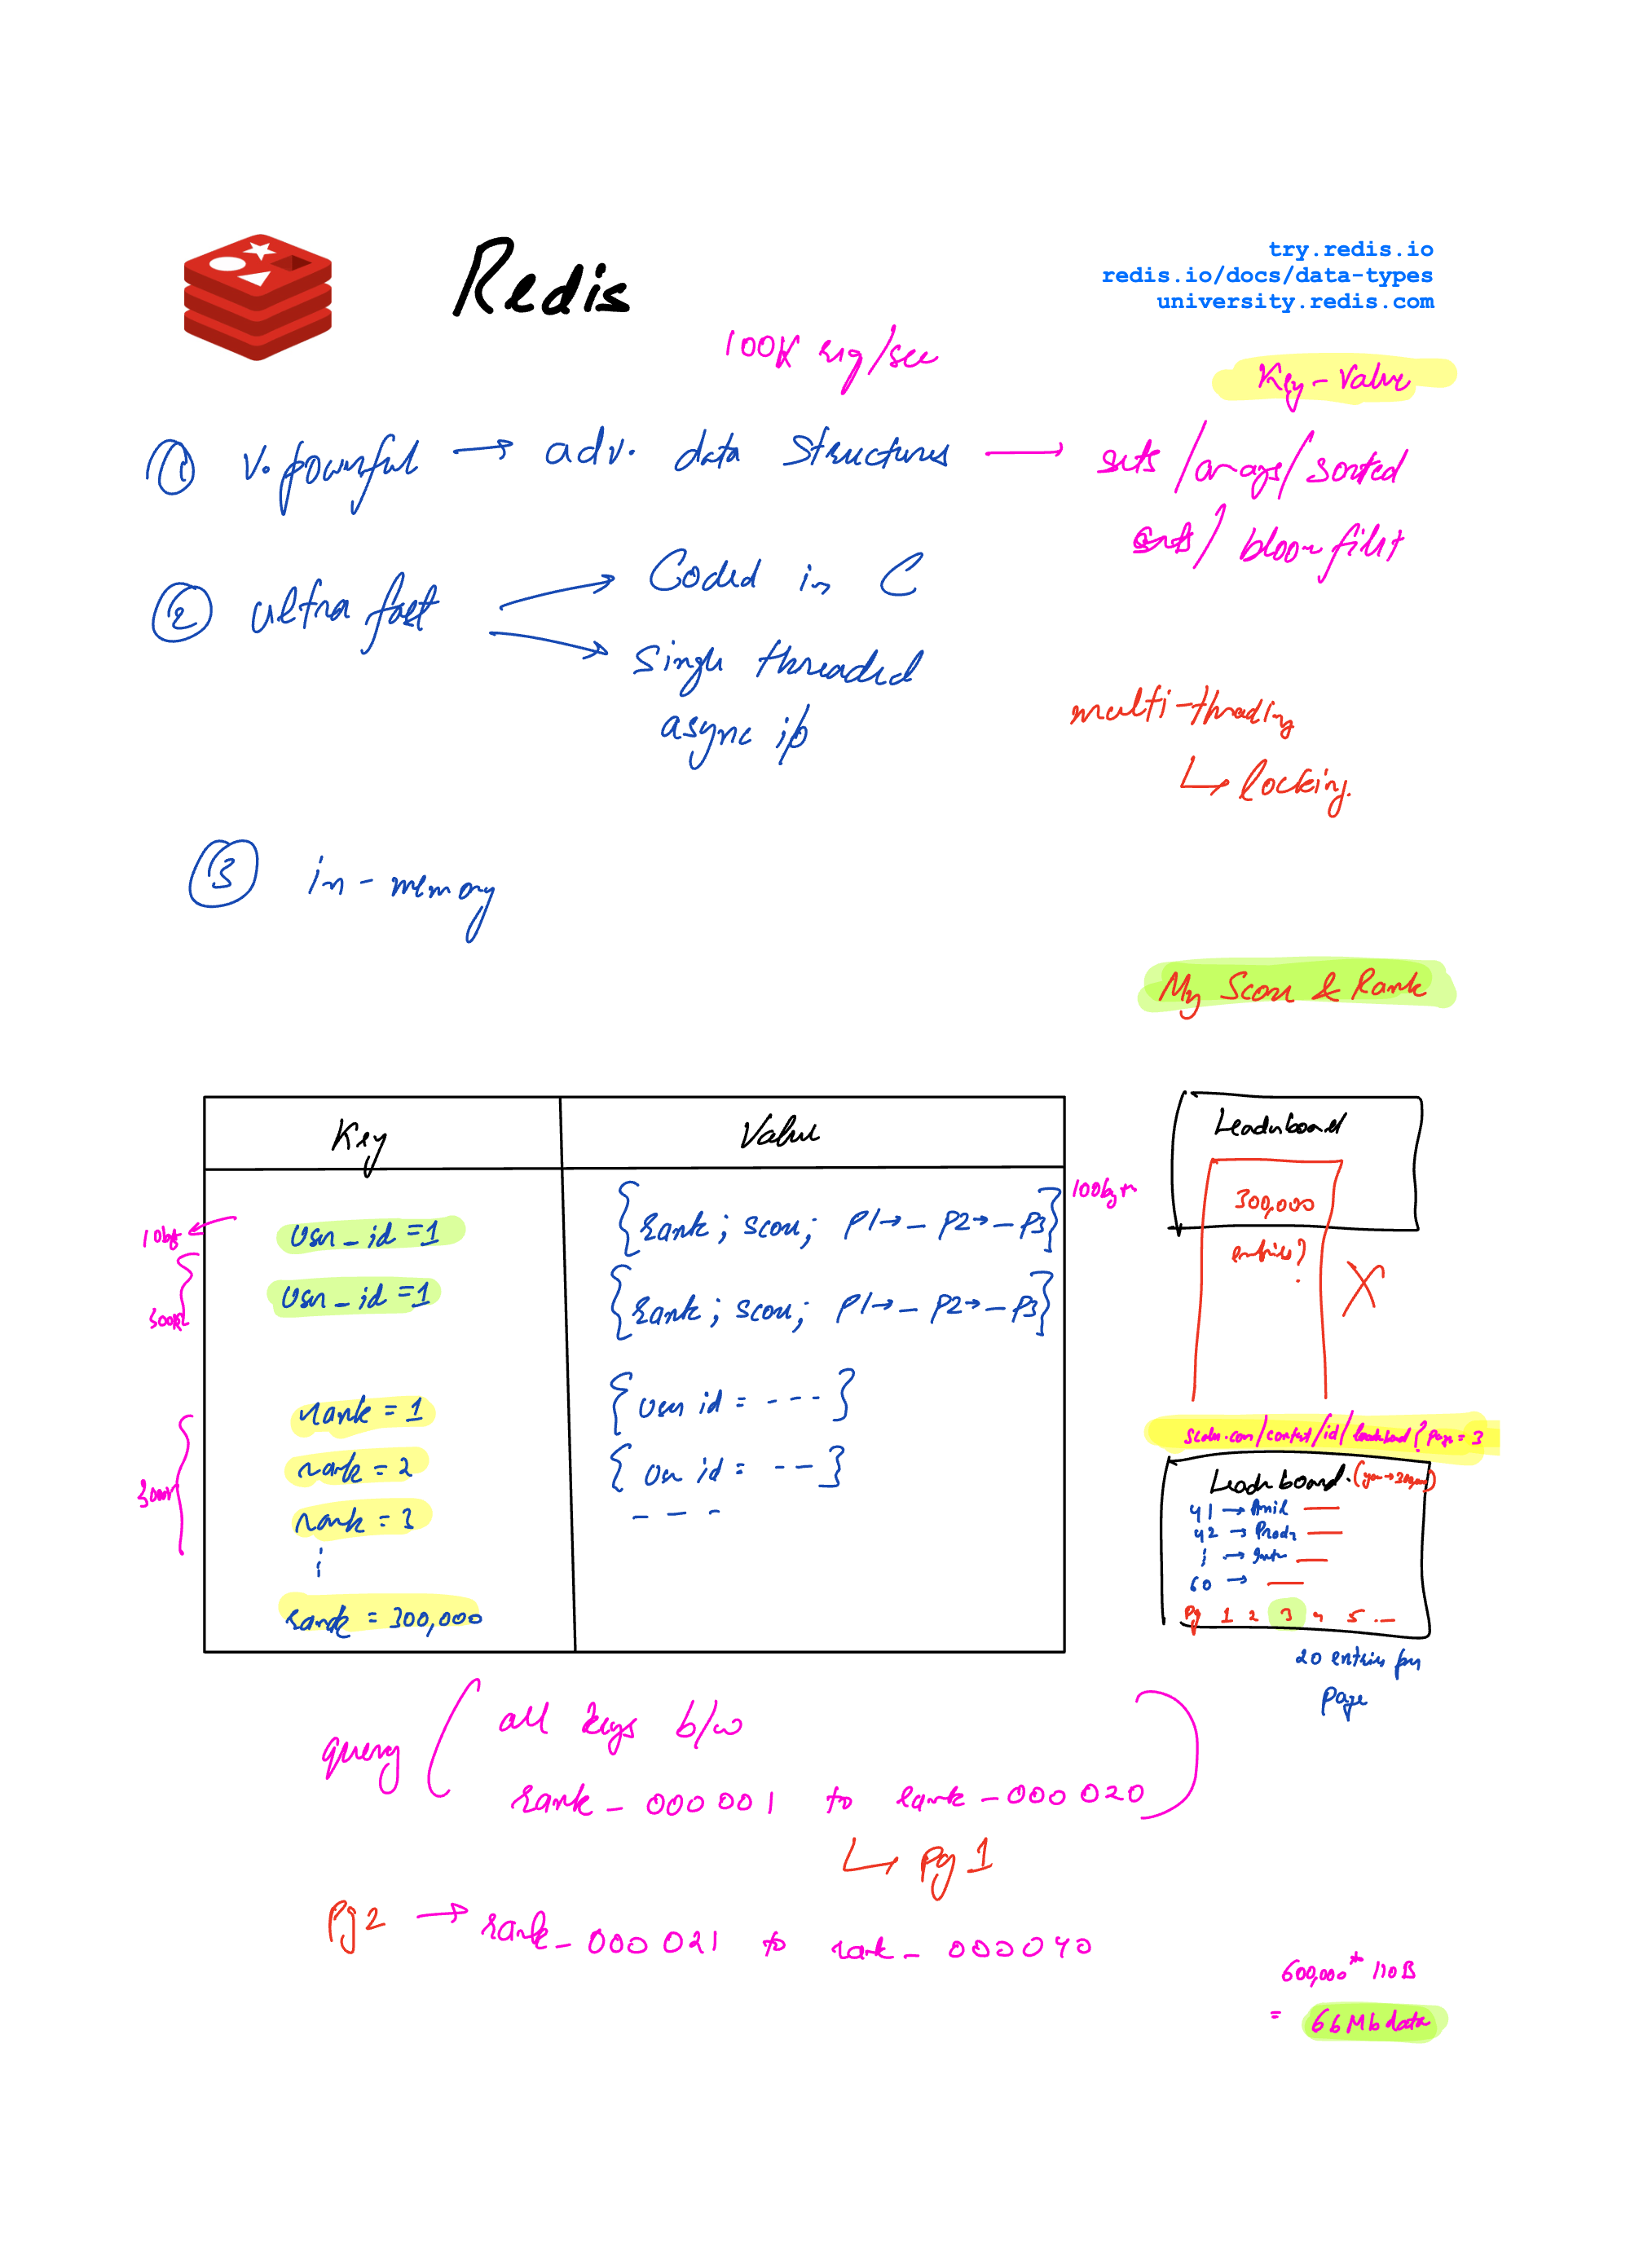 Redis
try.redis.io
redis.io/docs/data-types
university.redis.com
100K req/sec
Key - Value
1 v. powerful → adv. data structures → sets / arrays / sorted
sets / bloom filt
2 ultra fast → Coded in C
→ Single threaded
async i/o
multi-threading
↳ locking.
3 in-memory
My Score & Rank
Key Value
10 byt
user_id = 1 {rank; score; P1→_ P2→_ P3} 100 byte
300K
user_id = 1 {rank; score; P1→_ P2→_ P3}
rank = 1 {user id = ---}
rank = 2 {user id = --}
300K
rank = 3 - - -
rank = 300,000
Leaderboard
300,000
entries?
X
scaler.com/contest/id/leaderboard?page = 3
Leaderboard.
41 → Amil
42 →
60 →
Pg 1 2 3 4 5 ...
20 entries per
page
query ( all keys b/w
rank_000001 to rank_000020 )
↳ Pg 1
Pg 2 → rank_000021 to rank_000040
600,000 * 110B
= 66 Mb data